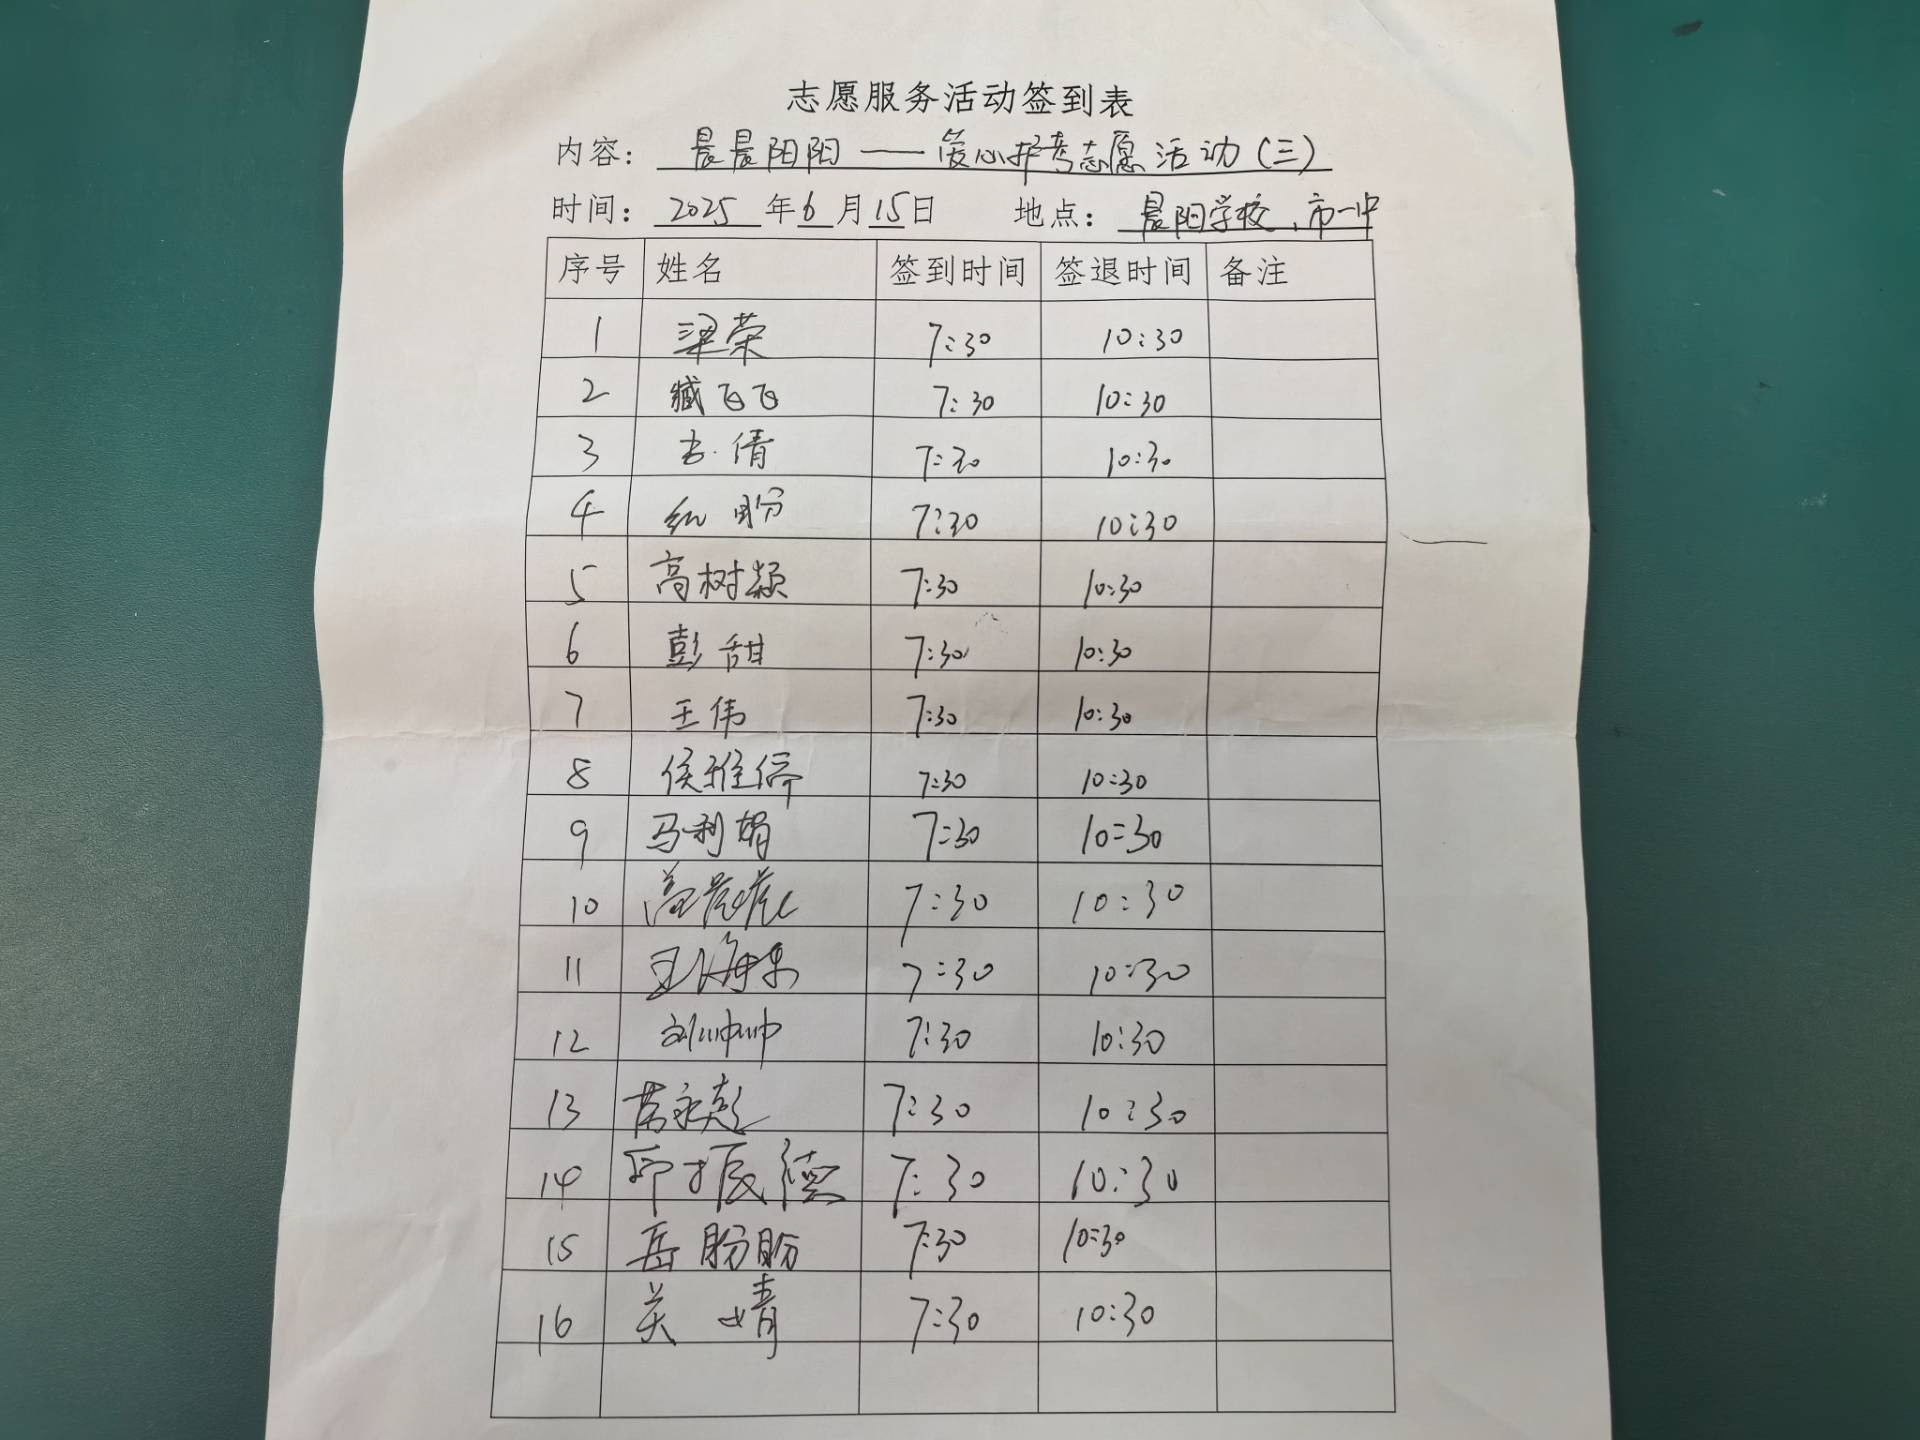 志愿服务活动签到表
内容: 晨晨阳阳——爱心护考志愿活动(三)
时间: 2025 年 6 月 15 日 地点: 晨阳学校、市一中
序号 姓名 签到时间 签退时间 备注
1 梁荣 7:30 10:30
2 臧飞飞 7:30 10:30
3 倩 7:30 10:30
4 纪盼 7:30 10:30
5 高树颖 7:30 10:30
6 彭甜 7:30 10:30
7 王伟 7:30 10:30
8 侯雅停 7:30 10:30
9 马利娟 7:30 10:30
10 高 7:30 10:30
11 王海 7:30 10:30
12 刘帅帅 7:30 10:30
13 永彪 7:30 10:30
14 振德 7:30 10:30
15 岳盼盼 7:30 10:30
16 关婧 7:30 10:30